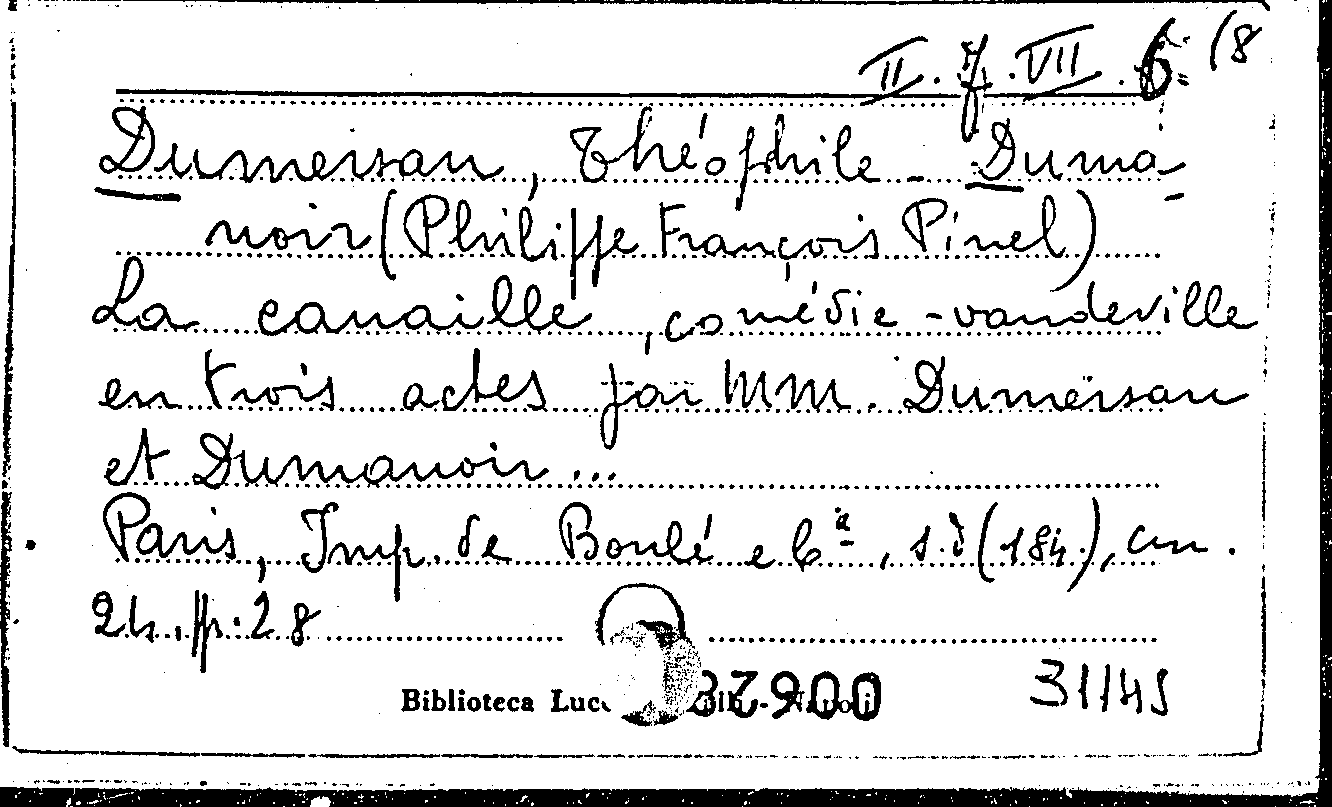 II. 7. VII. 6. (8
Dumersan, Théophile - Duma-
noir (Philippe François Pinel)
La canaille, comédie-vaudeville
en trois actes par MM. Dumersan
et Dumanoir...
Paris, Imp. de Boulé e Cª, s.d (184.), cm.
24, pp. 28
Biblioteca Lucc
31145